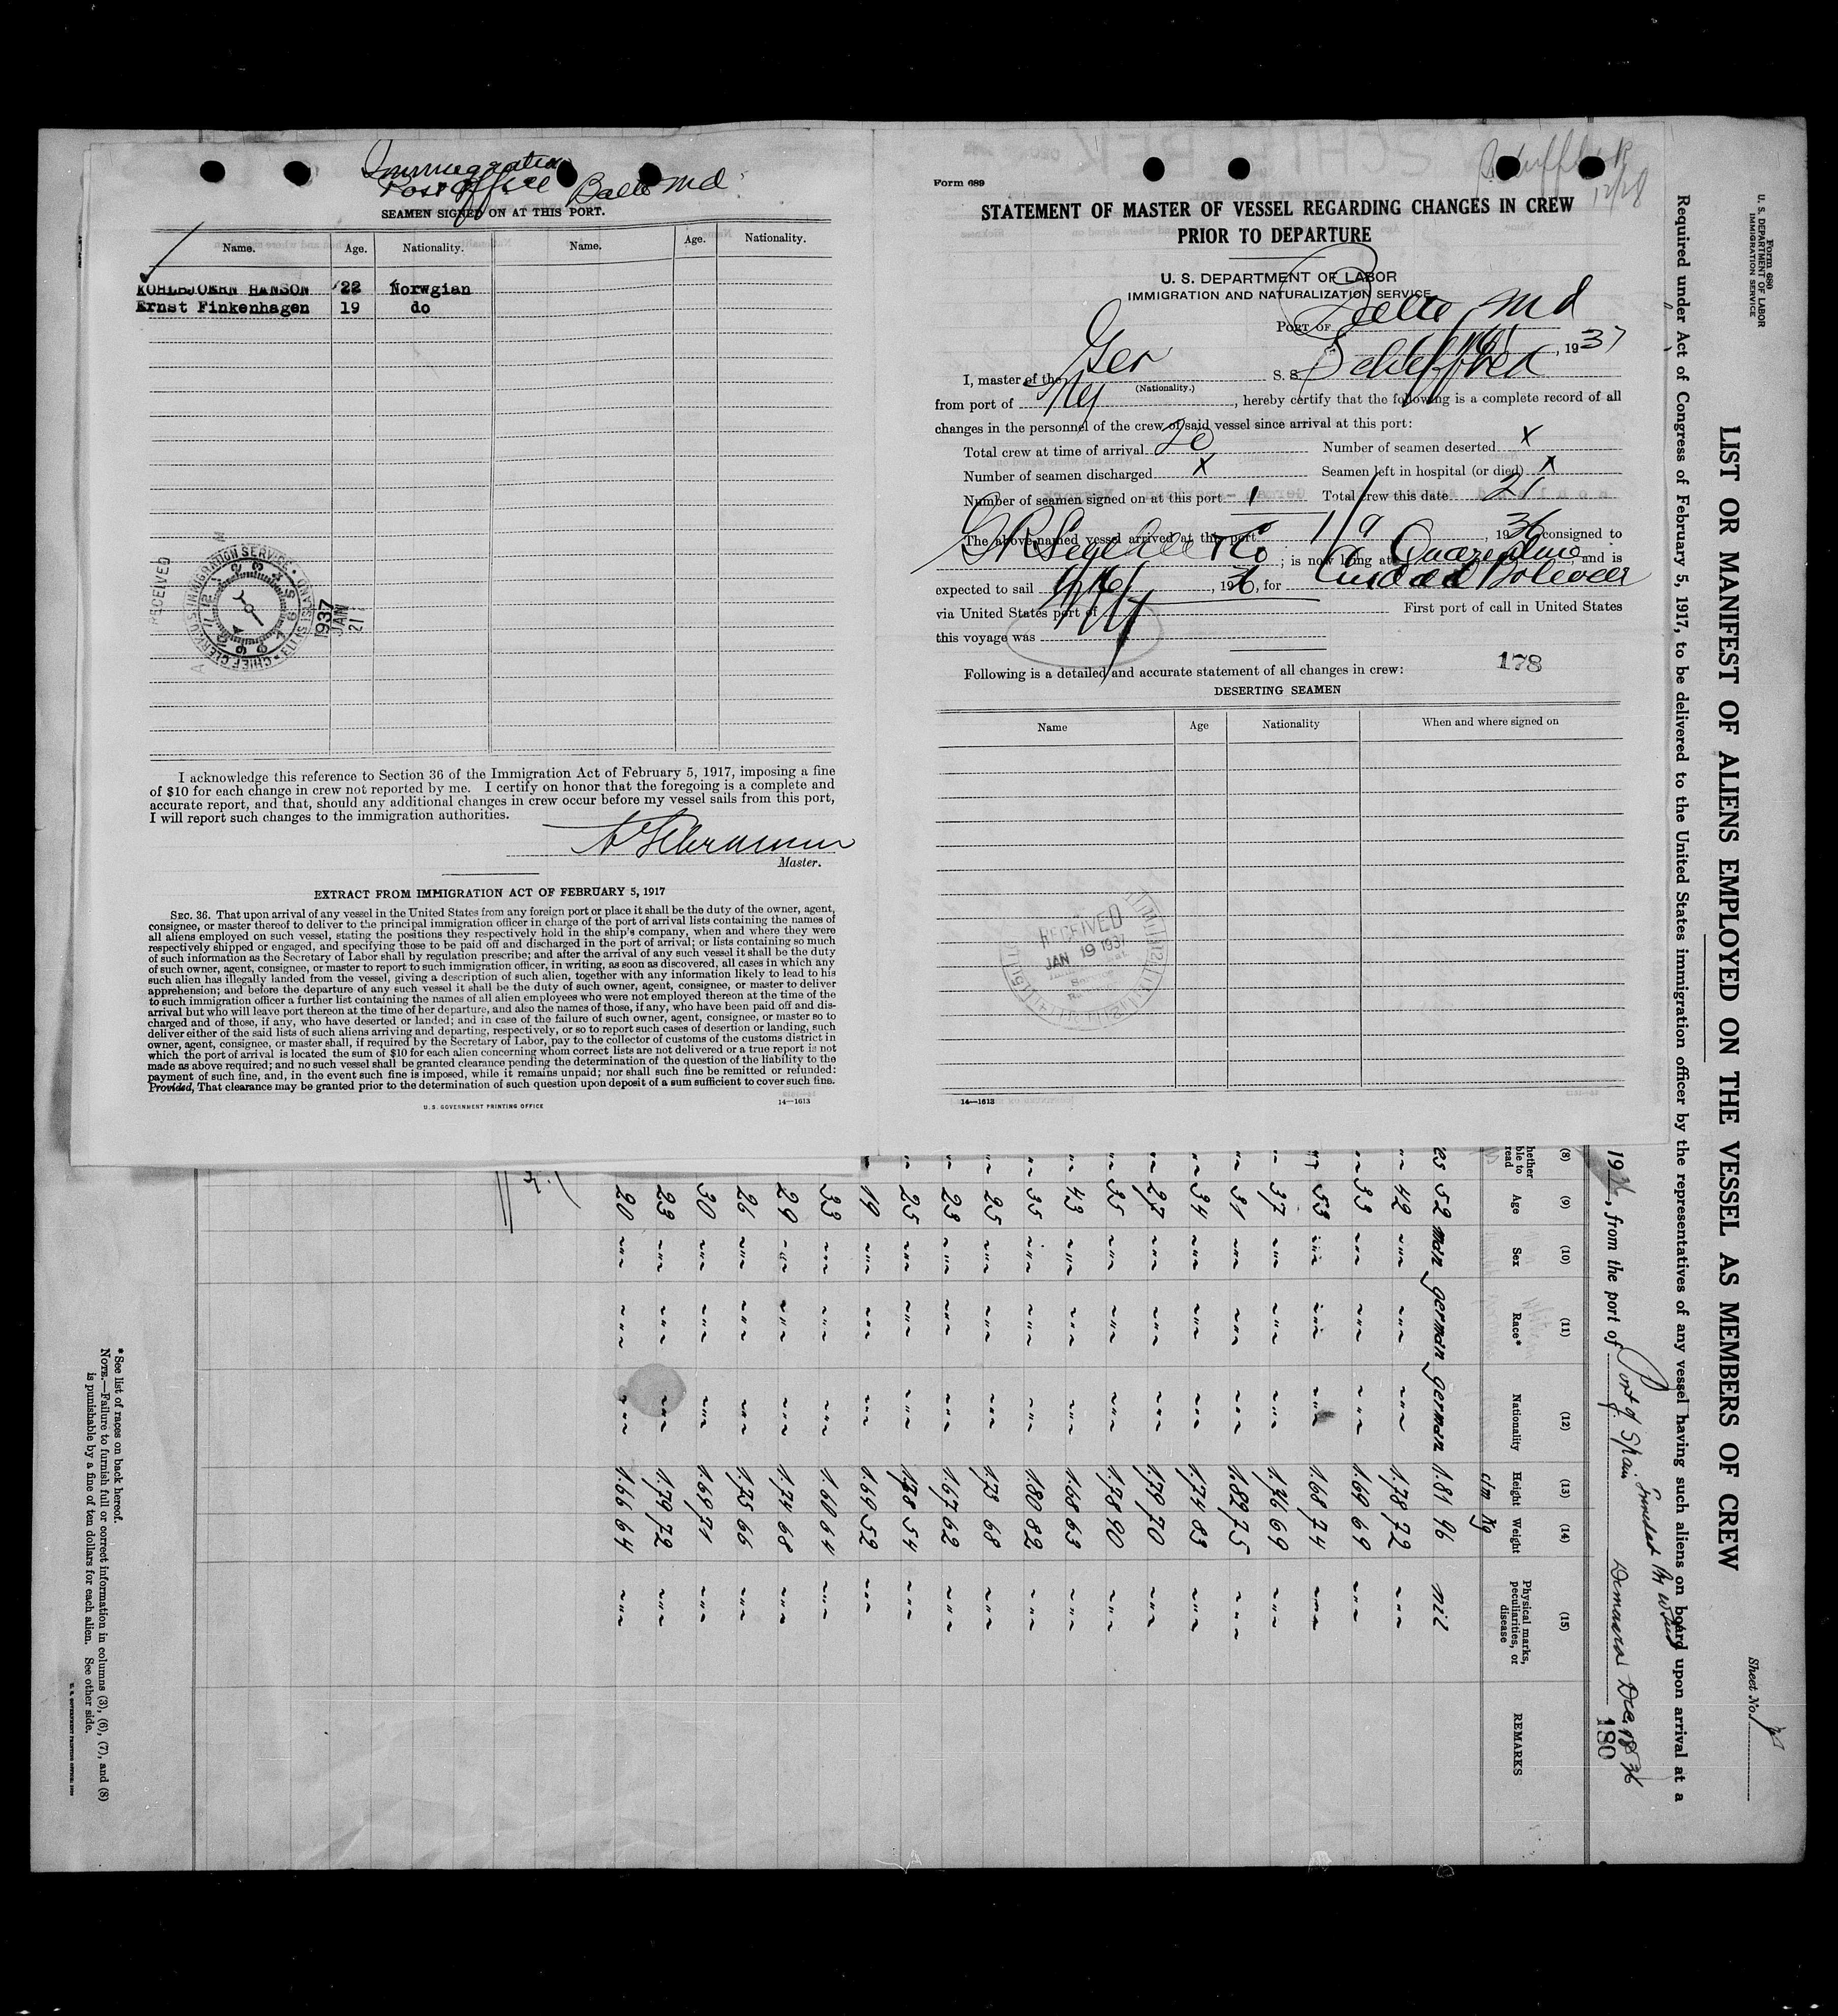 Immigration
Post Office Balto Md
SEAMEN SIGNED ON AT THIS PORT.
Name. Age. Nationality. Name. Age. Nationality.
HANSON 22 Norwgian
Ernst Finkenhagen 19 do
RECEIVED
CHIEF CLERK U.S. IMMIGRATION SERVICE ELLIS ISLAND
1937 JAN 21
I acknowledge this reference to Section 36 of the Immigration Act of February 5, 1917, imposing a fine
of $10 for each change in crew not reported by me. I certify on honor that the foregoing is a complete and
accurate report, and that, should any additional changes in crew occur before my vessel sails from this port,
I will report such changes to the immigration authorities.
Master.
EXTRACT FROM IMMIGRATION ACT OF FEBRUARY 5, 1917
SEC. 36. That upon arrival of any vessel in the United States from any foreign port or place it shall be the duty of the owner, agent,
consignee, or master thereof to deliver to the principal immigration officer in charge of the port of arrival lists containing the names of
all aliens employed on such vessel, stating the positions they respectively hold in the ship's company, when and where they were
respectively shipped or engaged, and specifying those to be paid off and discharged in the port of arrival; or lists containing so much
of such information as the Secretary of Labor shall by regulation prescribe; and after the arrival of any such vessel it shall be the duty
of such owner, agent, consignee, or master to report to such immigration officer, in writing, as soon as discovered, all cases in which any
such alien has illegally landed from the vessel, giving a description of such alien, together with any information likely to lead to his
apprehension; and before the departure of any such vessel it shall be the duty of such owner, agent, consignee, or master to deliver
to such immigration officer a further list containing the names of all alien employees who were not employed thereon at the time of the
arrival but who will leave port thereon at the time of her departure, and also the names of those, if any, who have been paid off and dis-
charged and of those, if any, who have deserted or landed; and in case of the failure of such owner, agent, consignee, or master so to
deliver either of the said lists of such aliens arriving and departing, respectively, or so to report such cases of desertion or landing, such
owner, agent, consignee, or master shall, if required by the Secretary of Labor, pay to the collector of customs of the customs district in
which the port of arrival is located the sum of $10 for each alien concerning whom correct lists are not delivered or a true report is not
made as above required; and no such vessel shall be granted clearance pending the determination of the question of the liability to the
payment of such fine, and, in the event such fine is imposed, while it remains unpaid; nor shall such fine be remitted or refunded:
Provided, That clearance may be granted prior to the determination of such question upon deposit of a sum sufficient to cover such fine.
U. S. GOVERNMENT PRINTING OFFICE 14—1613
12/28
Form 689
STATEMENT OF MASTER OF VESSEL REGARDING CHANGES IN CREW
PRIOR TO DEPARTURE
U. S. DEPARTMENT OF LABOR
IMMIGRATION AND NATURALIZATION SERVICE
PORT OF Balto Md
, 1937
I, master of the Ger S. S.
(Nationality.)
from port of NY, hereby certify that the following is a complete record of all
changes in the personnel of the crew of said vessel since arrival at this port:
Total crew at time of arrival 20 Number of seamen deserted X
Number of seamen discharged X Seamen left in hospital (or died) X
Number of seamen signed on at this port 1 Total crew this date 21
The above-named vessel arrived at this port 1/9, 1936 consigned to
; is now lying at Quarantine, and is
expected to sail , 1936, for Ciudad Bolivar
via United States port of NY First port of call in United States
this voyage was
178
Following is a detailed and accurate statement of all changes in crew:
DESERTING SEAMEN
Name Age Nationality When and where signed on
RECEIVED
JAN 19 1937
14—1613
Form 680
U. S. DEPARTMENT OF LABOR
IMMIGRATION SERVICE
Sheet No.
LIST OR MANIFEST OF ALIENS EMPLOYED ON THE VESSEL AS MEMBERS OF CREW
Required under Act of Congress of February 5, 1917, to be delivered to the United States immigration officer by the representatives of any vessel having such aliens on board upon arrival at a
1936, from the port of Port of Spain Trinidad BWI
Demarara Dec 18 36
180
(8) (9) (10) (11) (12) (13) (14) (15)
hether ble to read Age Sex Race* Nationality Height Weight Physical marks, peculiarities, or disease REMARKS
c/m Kg
52 man german german 1.81 96 nil
42 1.78 72
33 1.69 69
53 1.68 74
37 1.76 69
31 1.82 75
34 1.74 83
27 1.79 70
35 1.78 90
43 1.68 63
35 1.80 82
25 1.73 68
23 1.67 62
25 1.78 54
19 1.69 52
33 1.60 64
29 1.74 68
26 1.75 66
30 1.69 71
23 1.79 72
20 1.66 64
*See list of races on back hereof.
NOTE.—Failure to furnish full or correct information in columns (3), (6), (7), and (8)
is punishable by a fine of ten dollars for each alien. See other side.